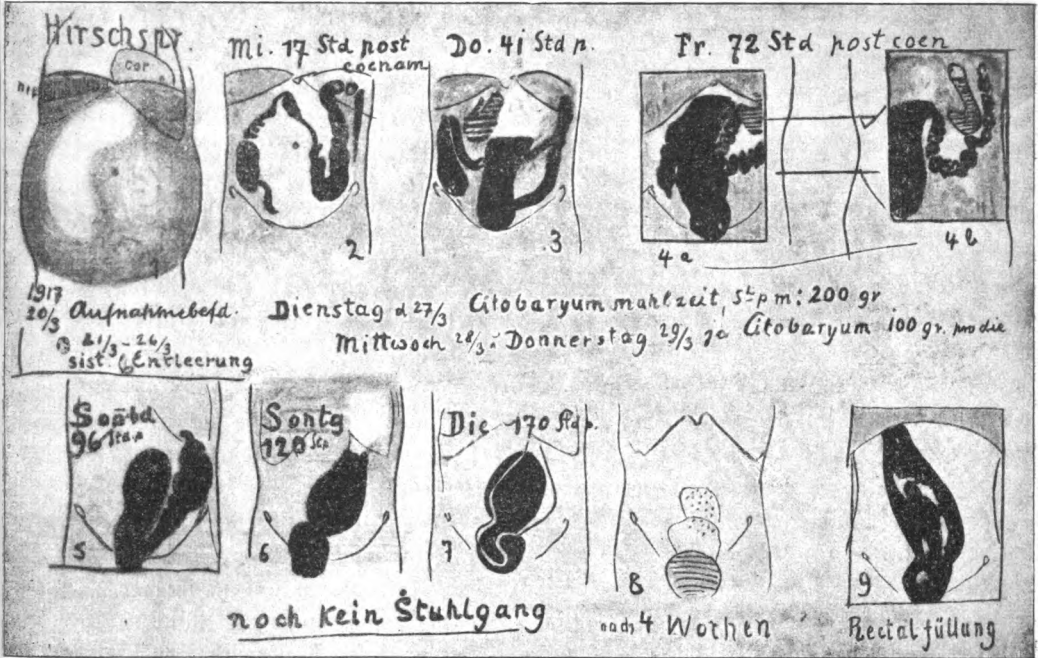 Hirschspr.
cor
Mi. 17 Std post
coenam
Do. 41 Std p.
Fr. 72 Std post coen
1
2
3
4a
4b
1917
20/3 Aufnahmebefd.
21/3 - 26/3
sist. Entleerung
Dienstag d 27/3 Citobaryummahlzeit, pm: 200 gr
Mittwoch 28/3 : Donnerstag 29/3 je Citobaryum 100 gr. pro die
Soñbd
96 Std.p
5
Sontg
120 Stp
6
Die 170 Std p.
7
8
9
noch kein Stuhlgang
nach 4 Wochen
Rectalfüllung